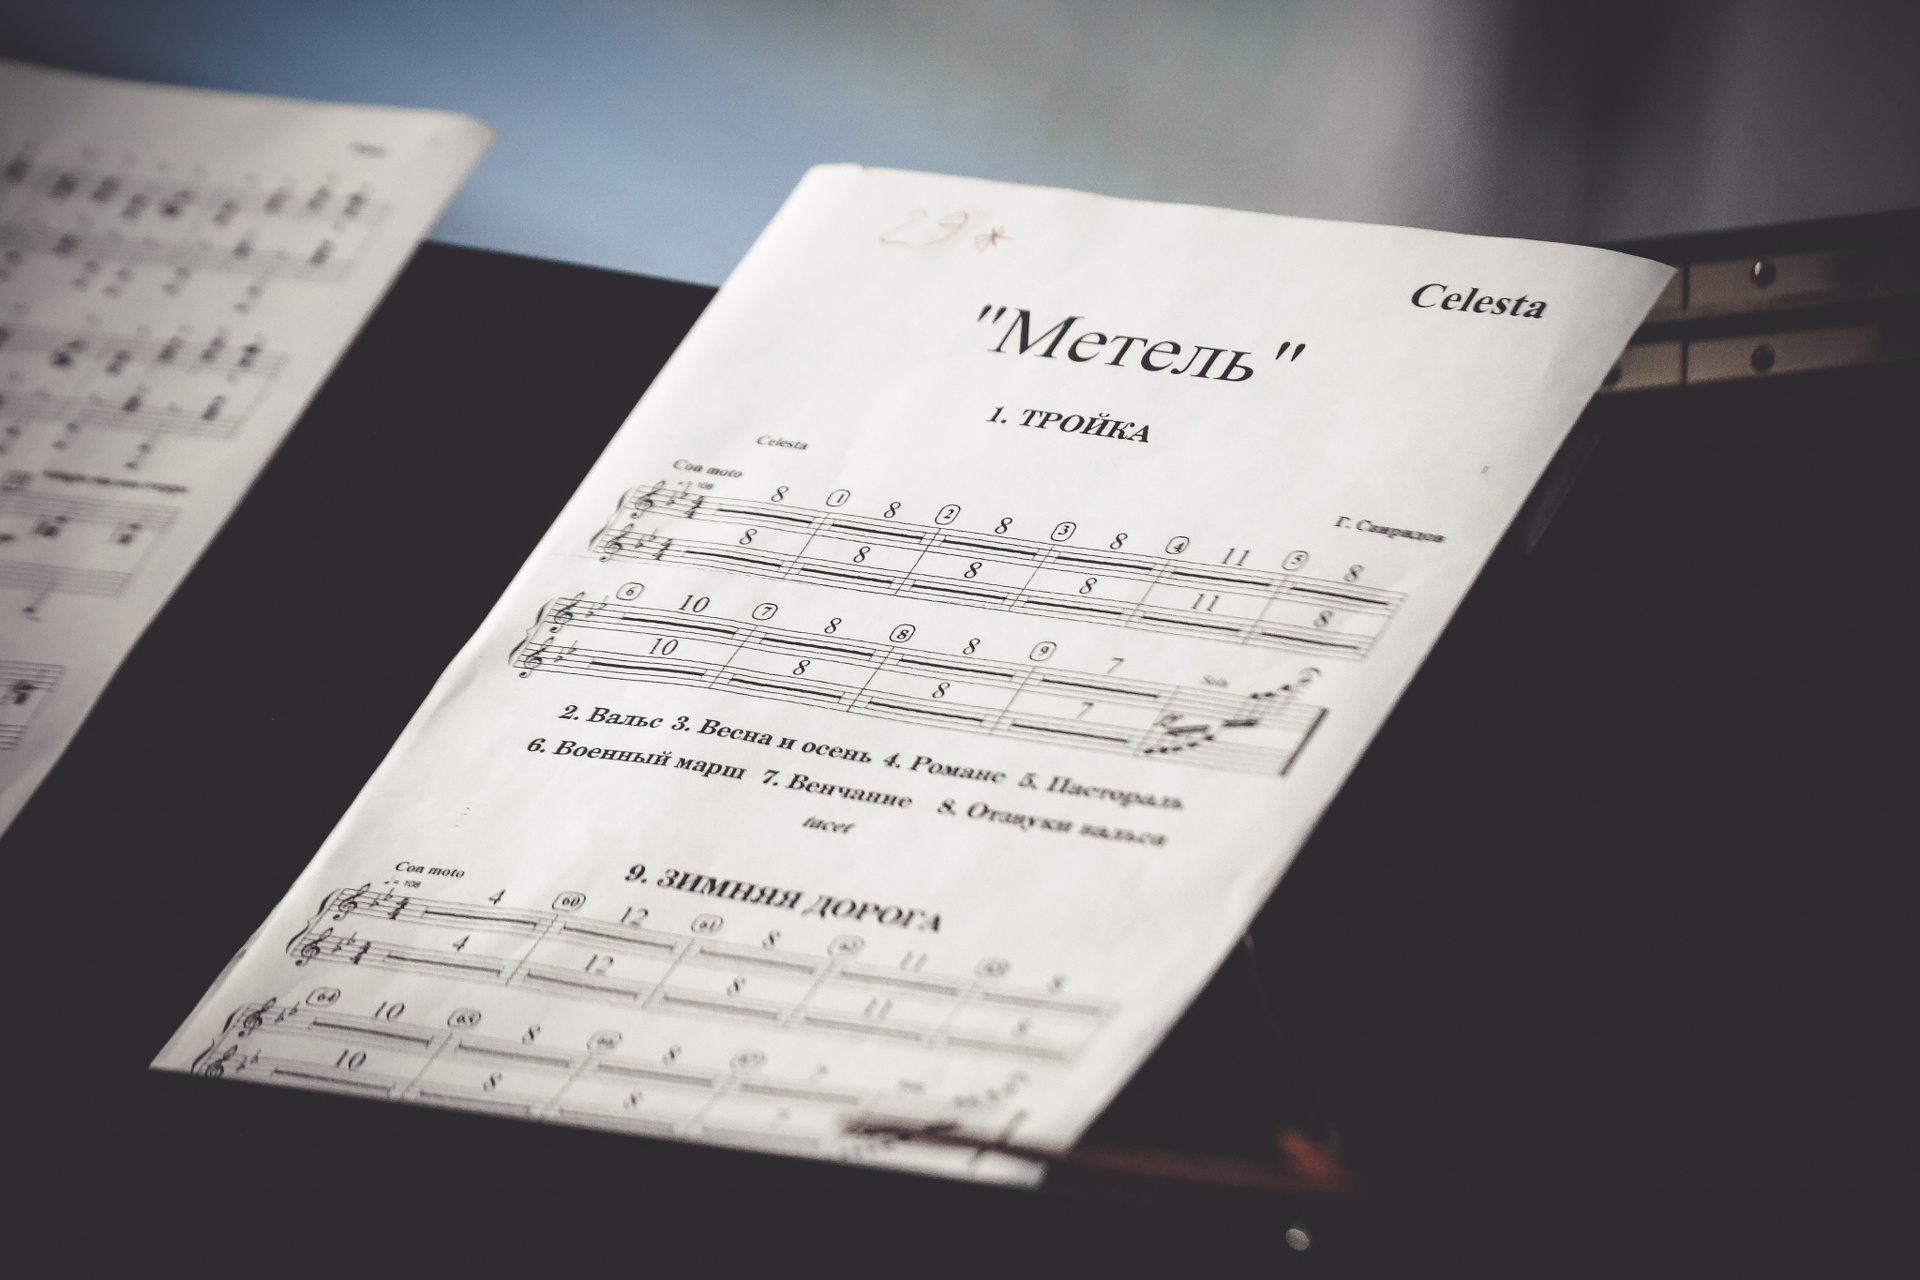 29 *
Celesta
"Метель"
1. ТРОЙКА
Celesta
Con moto
= 108
Г. Свиридов
8 1 8 2 8 3 8 4 11 5 8
8 8 8 8 11 8
6 10 7 8 8 8 9 7
Solo
10 8 8 7
2. Вальс 3. Весна и осень 4. Романс 5. Пастораль
6. Военный марш 7. Венчание 8. Отзвуки вальса
tacet
9. ЗИМНЯЯ ДОРОГА
Con moto
= 108
4 60 12 61 8 62 11 63 8
4 12 8 11 8
64 10 65 8 66 8 67
10 8 8